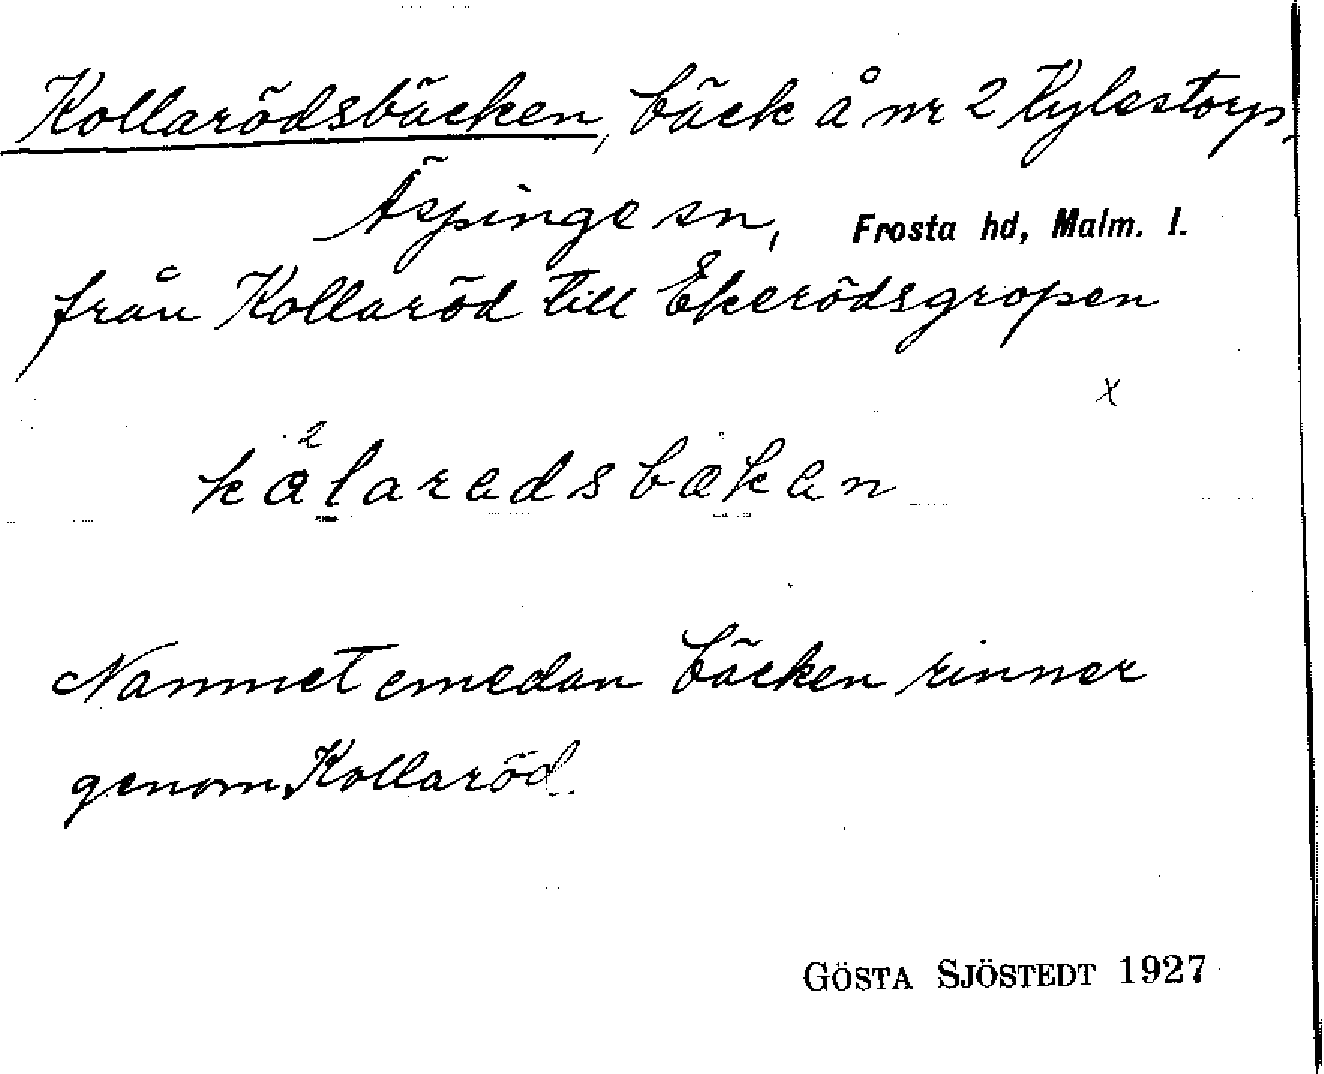 Kollarödsbäcken, bäck å nr 2 Kylestorp,
Äspinge sn, Frosta hd, Malm. l.
från Kollaröd till Ekerödsgropen
x
2
kålaradsbækan
Namnet emedan bäcken rinner
genom Kollaröd.
GÖSTA SJÖSTEDT 1927